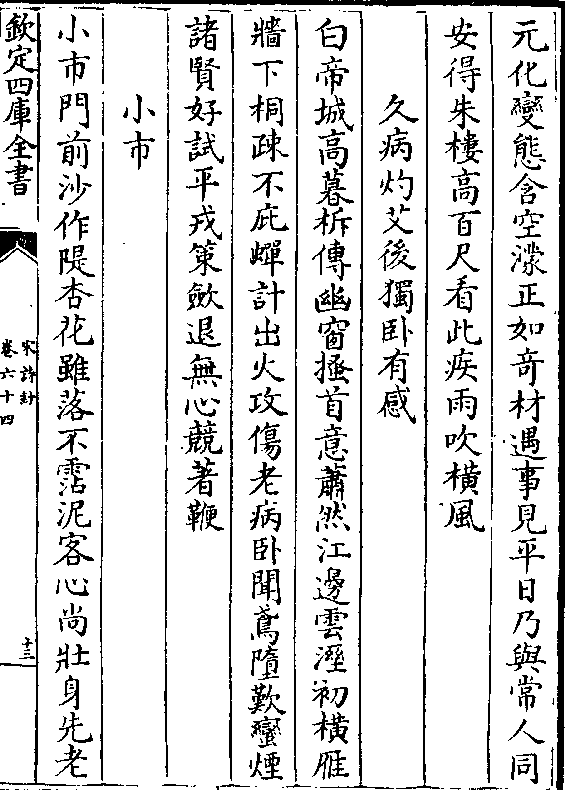 元化變態含空濛正如竒材遇事見平日乃與常人同
安得朱樓髙百尺看此疾雨吹横風
久病灼艾後獨卧有感
白帝城髙暮柝傳幽窗搔首意蕭然江邊雲溼初横雁
牆下桐疎不庇蟬計出火攻傷老病卧聞鳶墮歎蠻煙
諸賢好試平戎策斂退無心競著鞭
小市
小市門前沙作隄杏花雖落不霑泥客心尚壯身先老
欽定四庫全書
宋詩鈔
卷六十四
十三